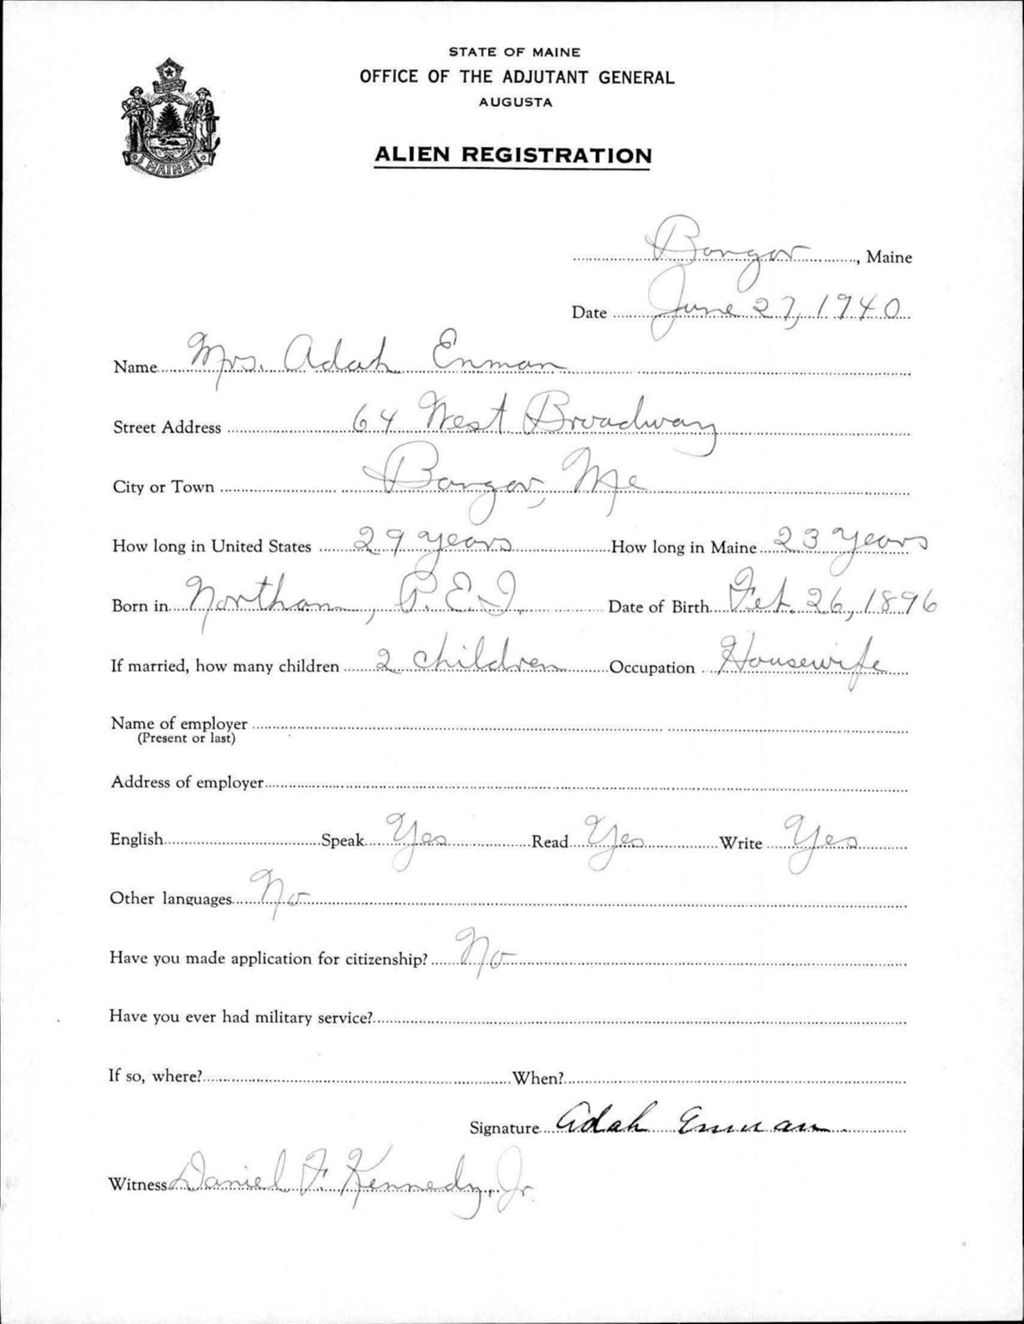 STATE OF MAINE
OFFICE OF THE ADJUTANT GENERAL
AUGUSTA
ALIEN REGISTRATION
MAINE
Bangor, Maine
Date June 27, 1940
Name Mrs. Adah Enman
Street Address 64 West Broadway
City or Town Bangor, Me
How long in United States 29 years How long in Maine 23 years
Born in Northam, P.E.I. Date of Birth Feb. 26, 1896
If married, how many children 2 children Occupation Housewife
Name of employer
(Present or last)
Address of employer
English Speak Yes Read Yes Write Yes
Other languages No
Have you made application for citizenship? No
Have you ever had military service?
If so, where? When?
Signature Adah Enman
Witness Daniel F. Kennedy, Jr.